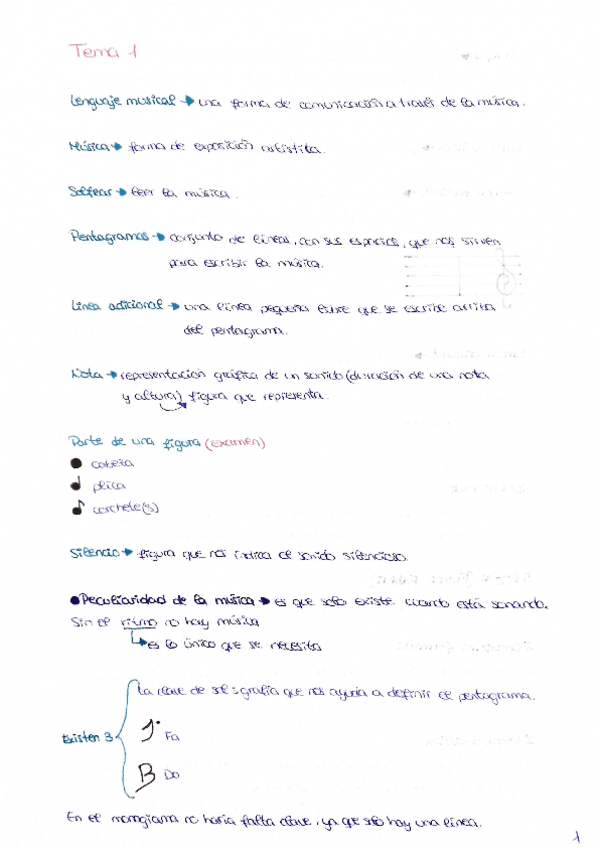 Tema 1
Lenguaje musical → una forma de comunicación a través de la música.
Música → forma de exposición artística.
Solfear → leer la música.
Pentagramas → conjunto de líneas, con sus espacios, que nos sirven
para escribir la música.
Línea adicional → una línea pequeña que se escribe arriba
del pentagrama.
Nota → representación gráfica de un sonido (duración de una nota
y altura) figura que representa.
Parte de una figura (examen)
● cabeza
plica
corchete(s)
Silencio → figura que nos indica el sonido silencioso.
● Peculiaridad de la música → es que solo existe cuanto está sonando.
Sin el ritmo no hay música
↳ es lo único que se necesita
Existen 3
La clave de sol: grafía que nos ayuda a definir el pentagrama.
Fa
Do
En el monograma no haría falta clave, ya que sólo hay una línea.
1